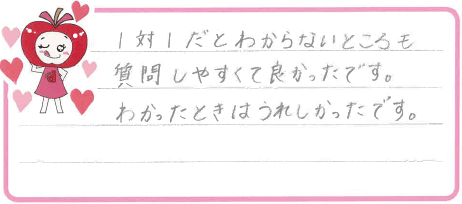 1対1だとわからないところも
質問しやすくて良かったです。
わかったときはうれしかったです。